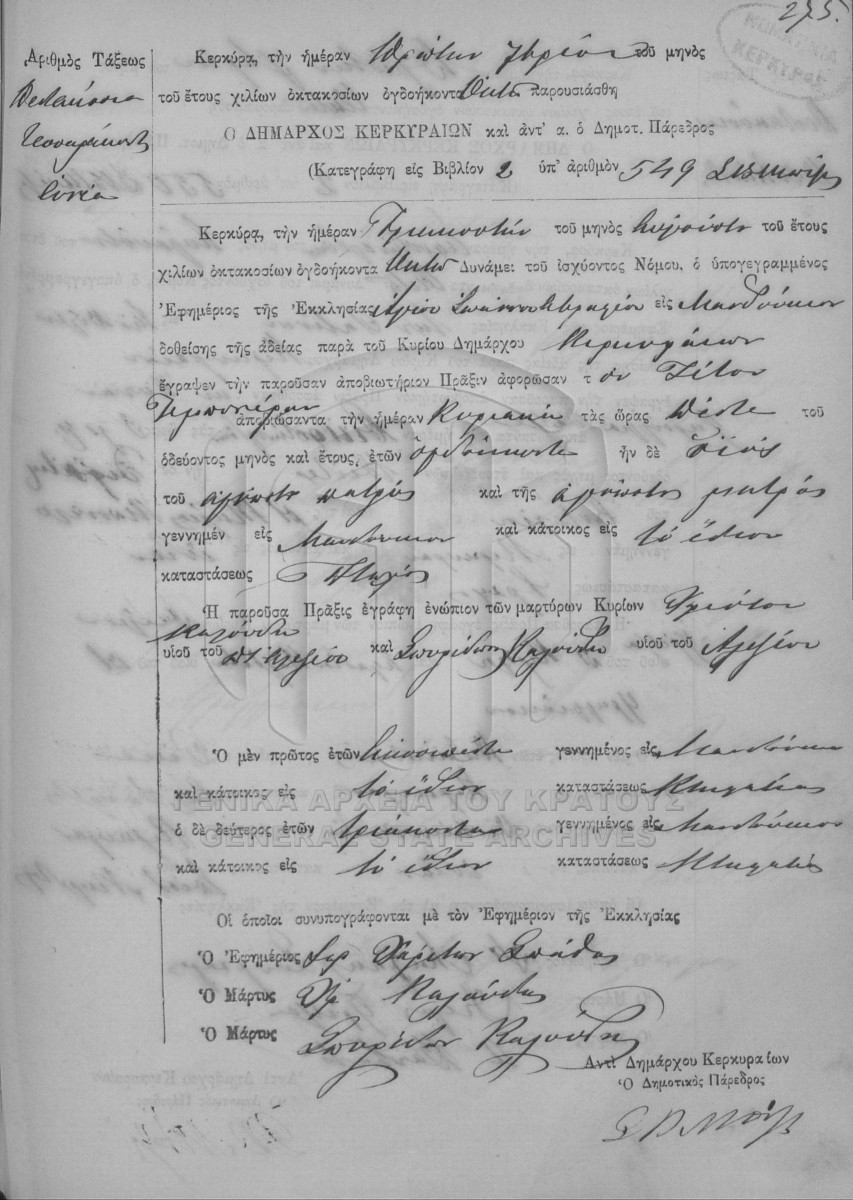 275.
ΚΕΡΚΥΡΑ
Ἀριθμὸς Τάξεως
Διακόσια
Τεσσαράκοντ
ἐννέα
Κερκύρᾳ, τὴν ἡμέραν Πρώτην 7βρίου τοῦ μηνὸς
τοῦ ἔτους χιλίων ὀκτακοσίων ὀγδοήκοντα Ὀκτὼ παρουσιάσθη
Ο ΔΗΜΑΡΧΟΣ ΚΕΡΚΥΡΑΙΩΝ καὶ ἀντ' α. ὁ Δημοτ. Πάρεδρος
(Κατεγράφη εἰς Βιβλίον 2 ὑπ' ἀριθμὸν 549
Κερκύρᾳ, τὴν ἡμέραν Τριακοστὴν τοῦ μηνὸς Αὐγούστου τοῦ ἔτους
χιλίων ὀκτακοσίων ὀγδοήκοντα Ὀκτὼ Δυνάμει τοῦ ἰσχύοντος Νόμου, ὁ ὑπογεγραμμένος
Ἐφημέριος τῆς Ἐκκλησίας Ἁγίου εἰς Μανδούκιον
δοθείσης τῆς ἀδείας παρὰ τοῦ Κυρίου Δημάρχου Κερκυραίων
ἔγραψεν τὴν παροῦσαν ἀποβιωτήριον Πρᾶξιν ἀφορῶσαν τ ὸν Τίτον
ἀποβιώσαντα τὴν ἡμέραν Κυριακὴ τὰς ὥρας Πέντε τοῦ
ὁδεύοντος μηνὸς καὶ ἔτους, ἐτῶν ὀγδοήκοντα ἦν δὲ υἱὸς
τοῦ ἀγνώστου πατρὸς καὶ τῆς ἀγνώστου μητρὸς
γεννημέν εἰς Μανδούκιον καὶ κάτοικος εἰς τὸ ἴδιον
καταστάσεως Πτωχὸς
Ἡ παροῦσα Πρᾶξις ἐγράφη ἐνώπιον τῶν μαρτύρων Κυρίων Χρήστου
Καλούδη
υἱοῦ τοῦ Ἀλεξίου καὶ Σπυρίδωνος Καλούδη υἱοῦ τοῦ Ἀλεξίου
Ὁ μὲν πρῶτος ἐτῶν Εἰκοσιπέντε γεννημένος εἰς Μανδούκιον
καὶ κάτοικος εἰς τὸ ἴδιον καταστάσεως Κτηματίας
ὁ δὲ δεύτερος ἐτῶν τριάκοντα γεννημένος εἰς Μανδούκιον
καὶ κάτοικος εἰς τὸ ἴδιον καταστάσεως Κτηματίας
ΓΕΝΙΚΑ ΑΡΧΕΙΑ ΤΟΥ ΚΡΑΤΟΥΣ
GENERAL STATE ARCHIVES
Οἱ ὁποῖοι συνυπογράφονται μὲ τὸν Ἐφημέριον τῆς Ἐκκλησίας
Ὁ Ἐφημέριος Ἱερ Χαρίτων Σπάθας
Ὁ Μάρτυς Χρ Καλούδης
Ὁ Μάρτυς Σπυρίδων Καλούδης
Ἀντὶ Δημάρχου Κερκυραίων
Ὁ Δημοτικὸς Πάρεδρος